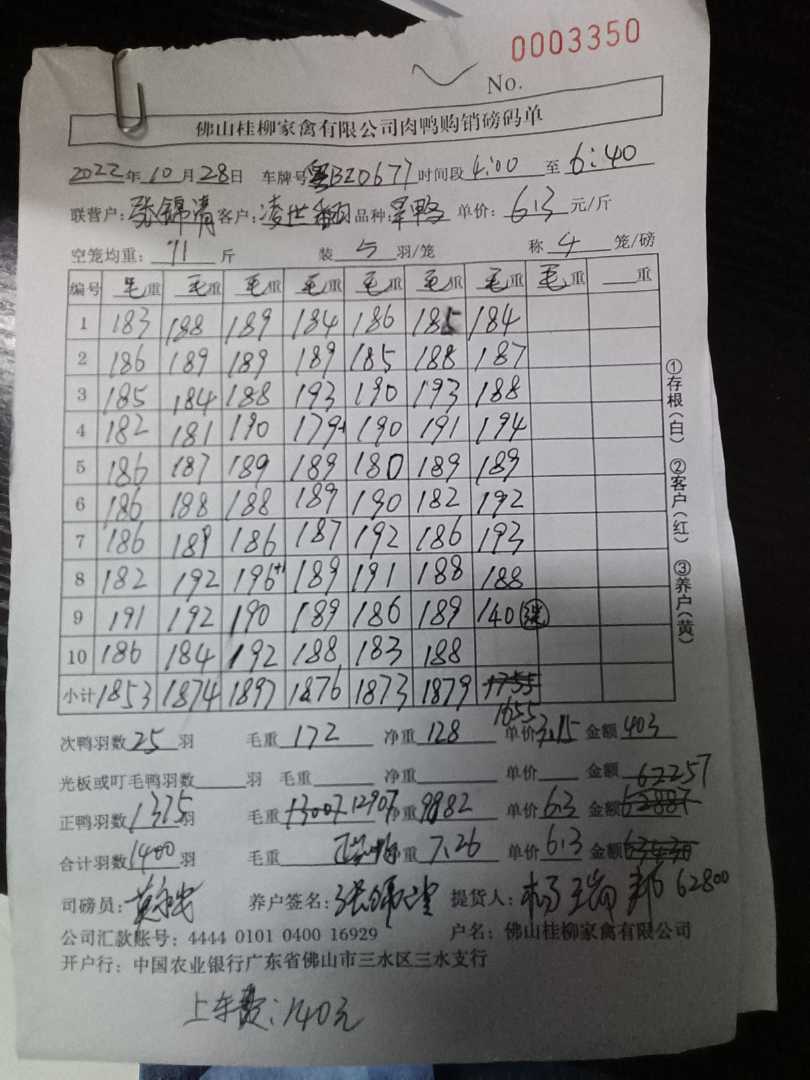 0003350
No.
佛山桂柳家禽有限公司肉鸭购销磅码单
2022年10月28日 车牌号粤BZ0677时间段4:00至6:40
联营户:张锦清 客户:凌世 品种:旱鸭 单价:6.3元/斤
空笼均重:11斤 装5羽/笼 称4笼/磅
编号 毛重 毛重 毛重 毛重 毛重 毛重 毛重 毛重 重
1 183 188 189 184 186 185 184
2 186 189 189 189 185 188 187
3 185 184 188 193 190 193 188
4 182 181 190 179 190 191 194
5 186 187 189 189 180 189 189
6 186 188 188 189 190 182 192
7 186 189 186 187 192 186 193
8 182 192 196+1 189 191 188 188
9 191 192 190 189 186 189 140
10 186 184 192 188 183 188
小计 1853 1874 1897 1876 1873 1879 1755
1655
①存根(白) ②客户(红) ③养户(黄)
次鸭羽数25羽 毛重172 净重128 单价3.15 金额403
光板或叮毛鸭羽数 羽 毛重 净重 单价 金额
62257
正鸭羽数1375羽 毛重13007 12907 净重9882 单价6.3 金额62887
合计羽数1400羽 毛重 净重7.26 单价6.3 金额63430
司磅员: 养户签名: 提货人:杨 62800
公司汇款账号:4444 0101 0400 16929 户名:佛山桂柳家禽有限公司
开户行:中国农业银行广东省佛山市三水区三水支行
上车费:140元